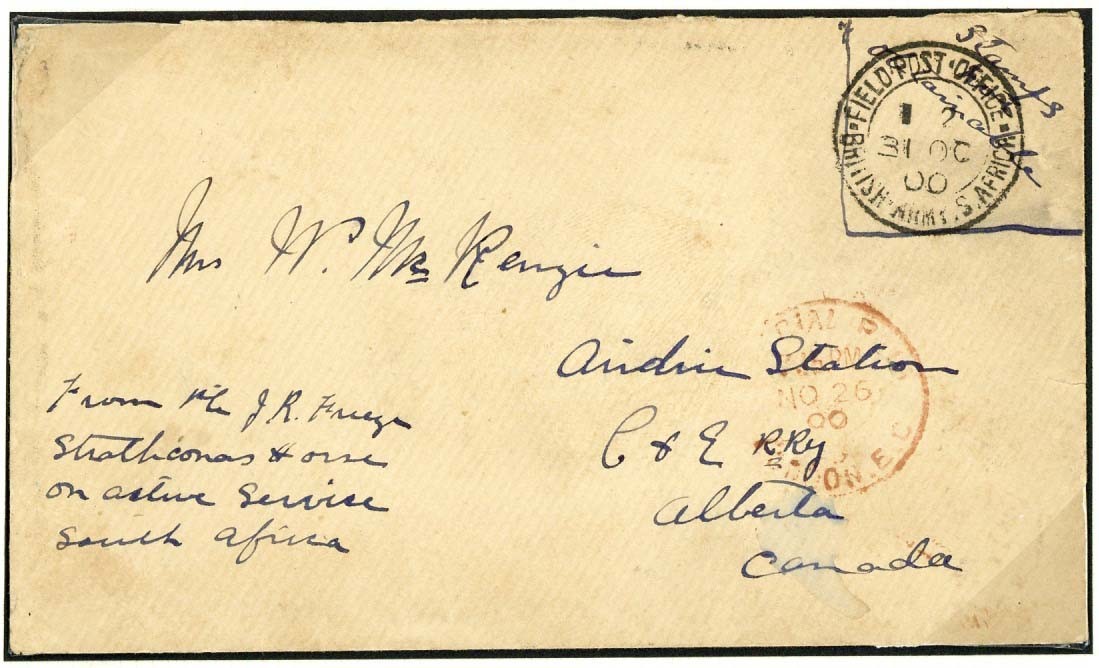 Stamps
FIELD·POST·OFFICE
BRITISH·ARMY·S.AFRICA
31 OC
00
Mrs W. McKenzie
Airdrie Station
C & E R Ry
Alberta
Canada
NO 26
00
From Pte J. R.
Strathconas Horse
on active Service
South Africa